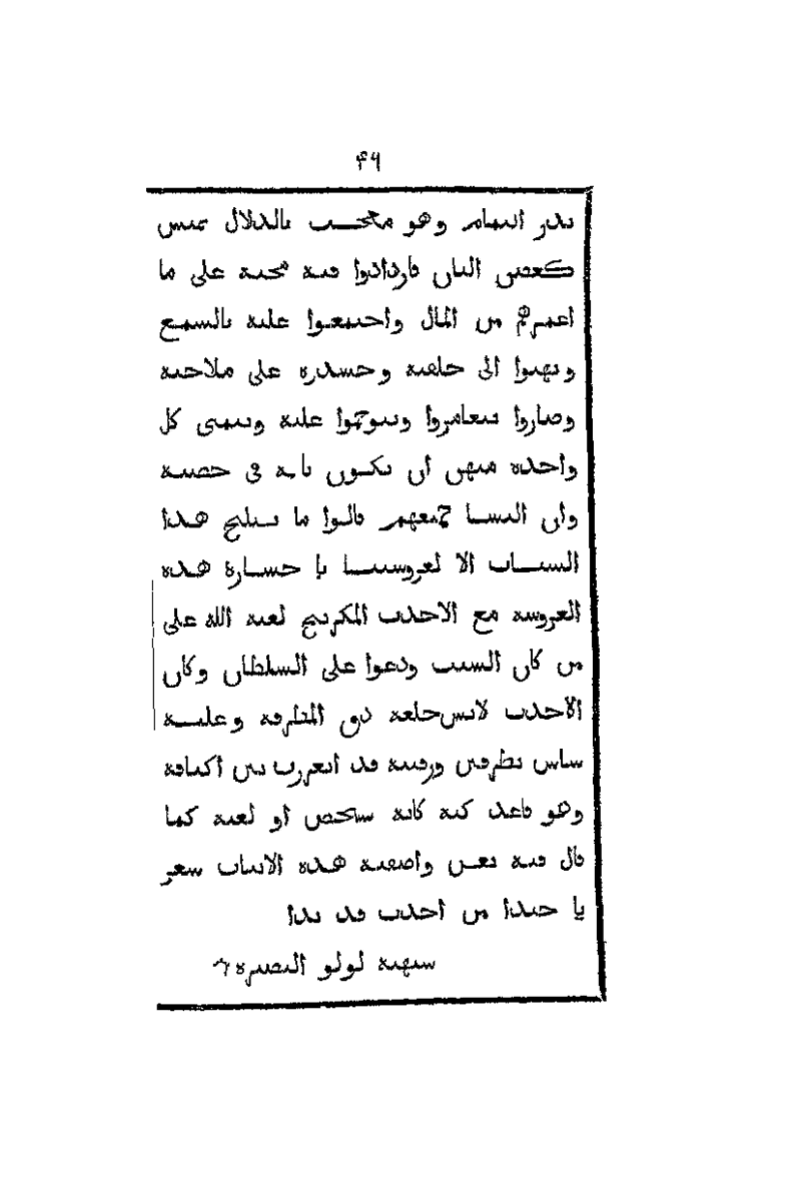 ۴۹
بدر التمام وهو محتجب بالدلال يميس
كغصن البان فازدادوا فيه محبة على ما
اغمرهم من المال واجتمعوا عليه بالشمع
وبهتوا الى خلقته وحسدوه على ملاحته
وصاروا يتغامزوا ويتوجهوا عليه وتتمنى كل
واحدة منهن ان تكون في حضنه
وان النسا جميعهم قالوا ما يصلح هذا
الشباب الا لعروستنا يا خسارة هذه
العروسة مع الاحدب لعنة الله على
من كان السبب ودعوا على السلطان وكان
الاحدب لابس خلعة دق المطرقة وعليه
شاش بطرفين ورقبته قد انغرزت بين اكتافه
وهو قاعد كبة كانه شخص او لعبة كما
قال فيه بعض واصفيه هذه الابيات شعر
يا حبذا من احدب قد بدا
شبهته لولو